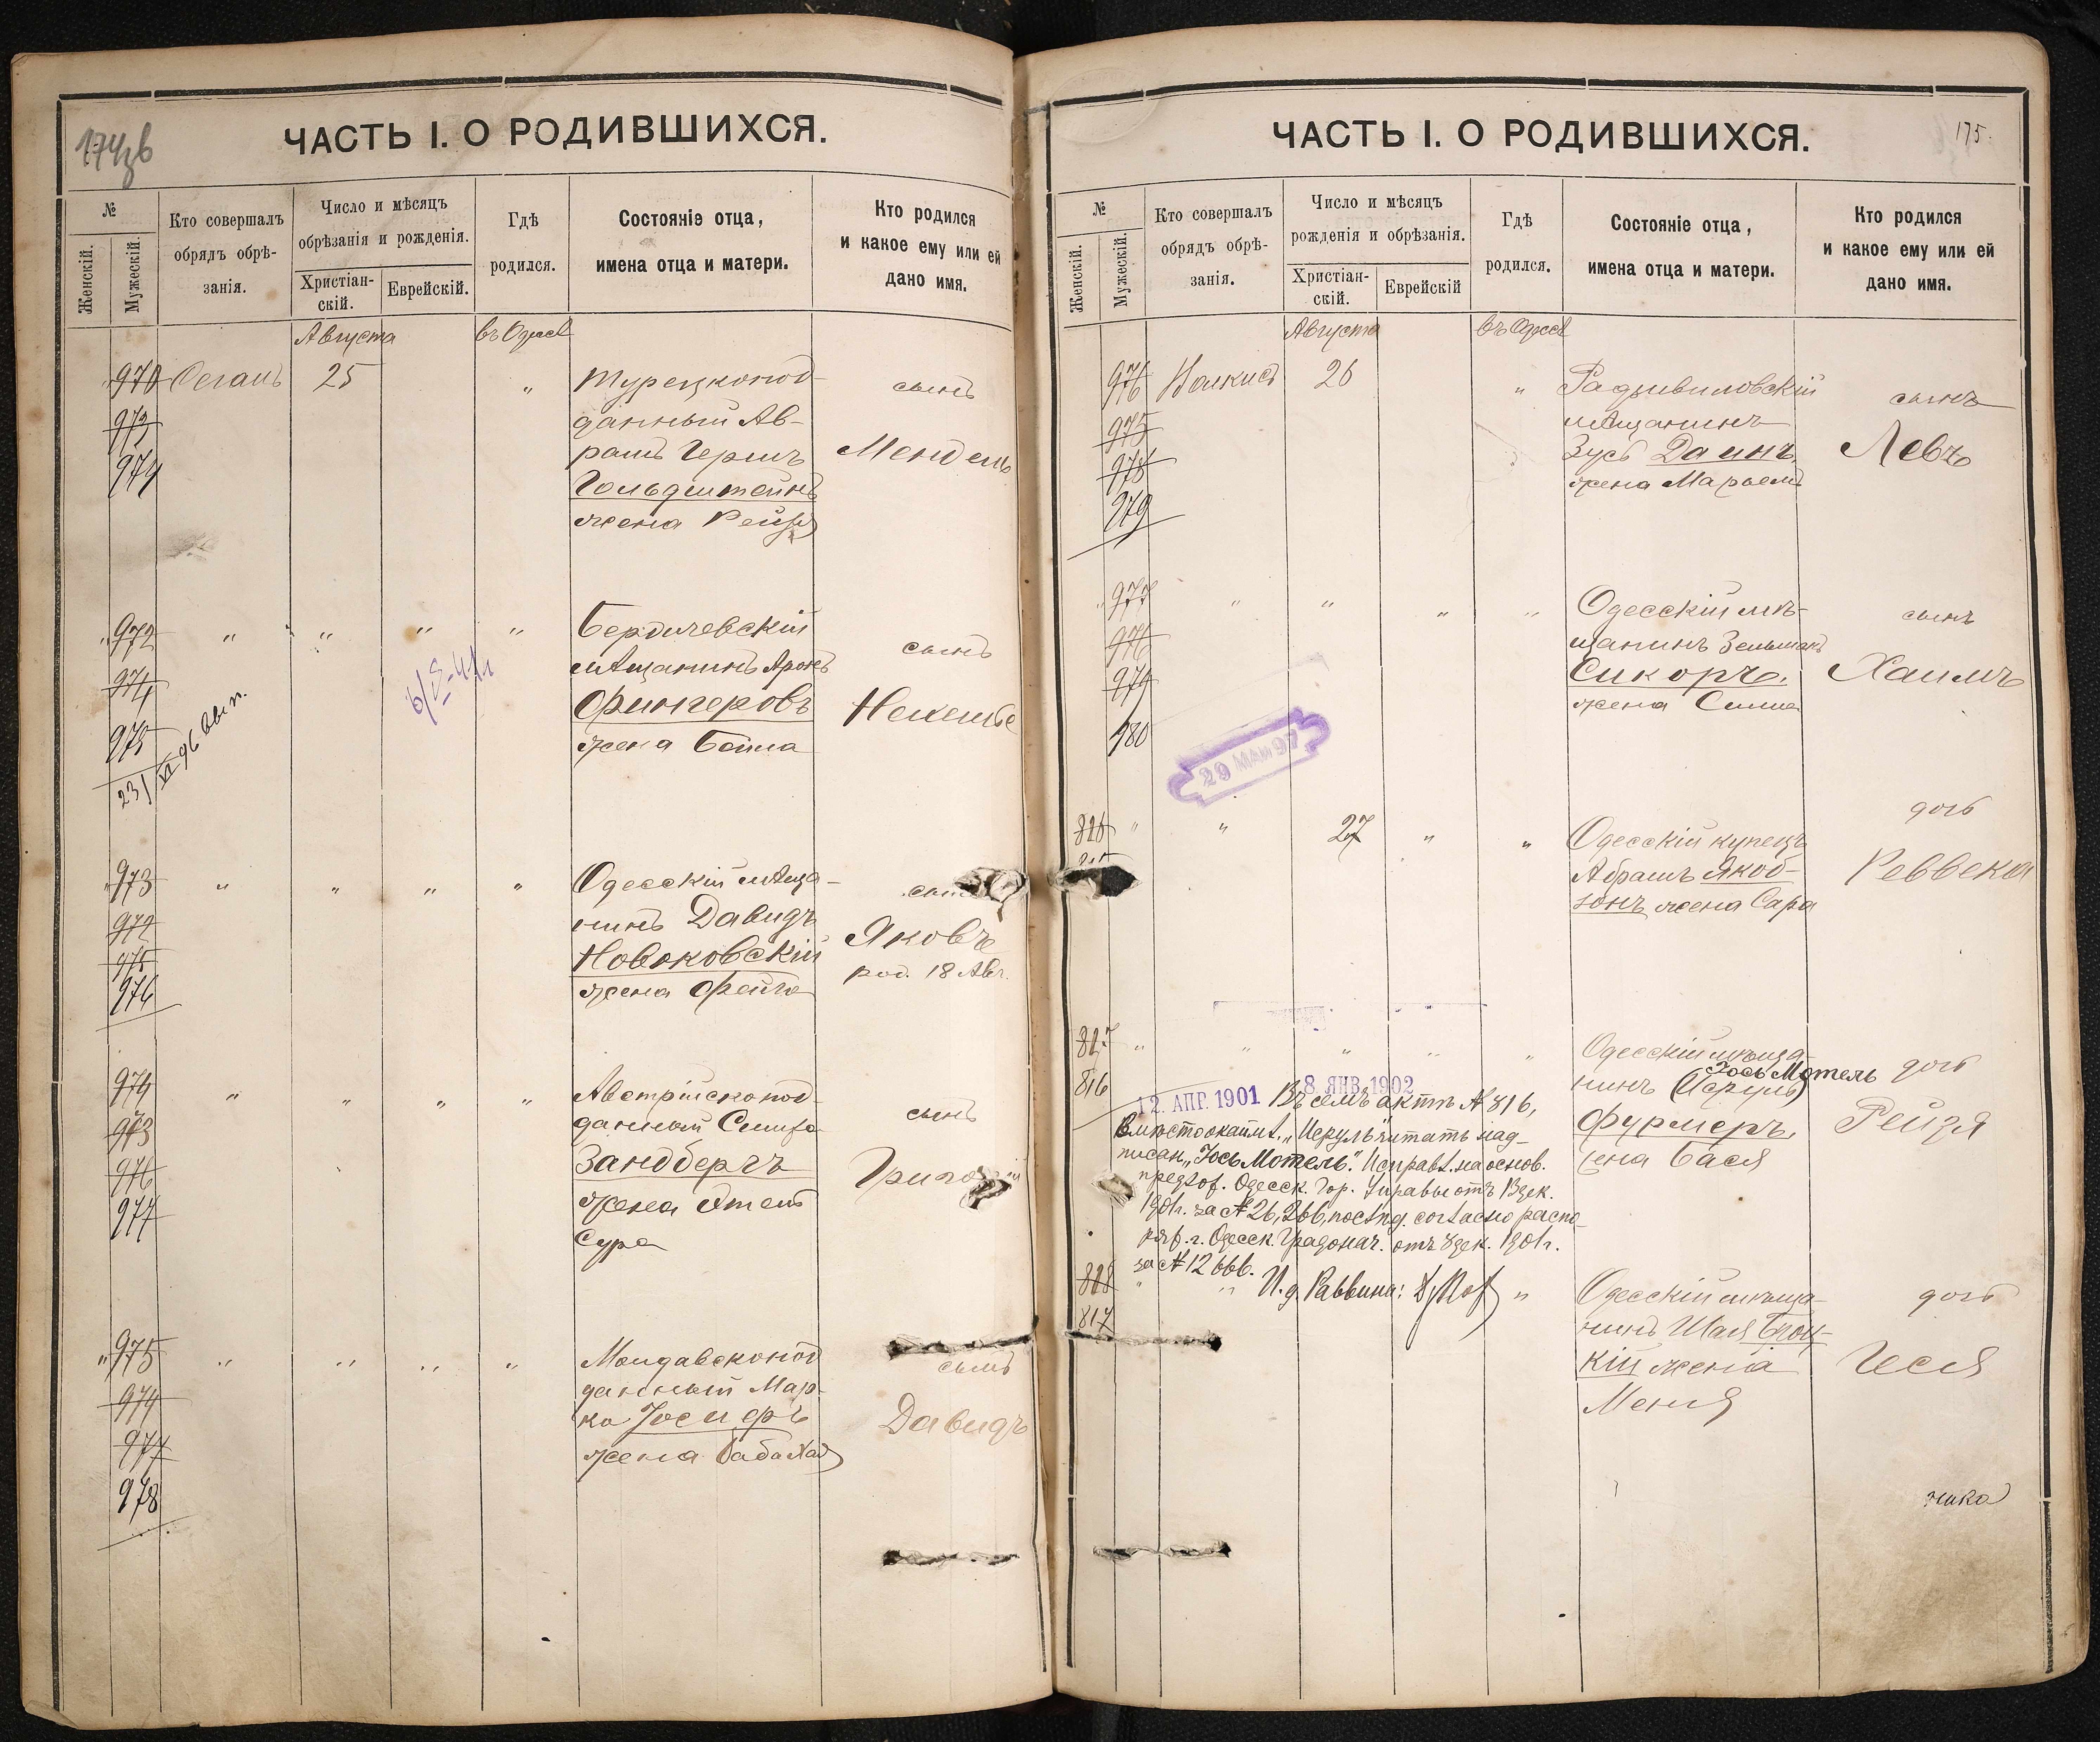 174 об
ЧАСТЬ I. О РОДИВШИХСЯ.
№
Женскій.
Мужескій.
Кто совершалъ
обрядъ обрѣ-
занія.
Число и мѣсяцъ
обрѣзанія и рожденія.
Христіан-
скій.
Еврейскій.
Гдѣ
родился.
Состояніе отца,
имена отца и матери.
Кто родился
и какое ему или ей
дано имя.
Августа
въ Одессѣ
970
973
974
25
"
Турецкопод-
данный Ав-
рамъ Гершъ
Гольдштейнъ
жена Рейзя
сынъ
Мендель
" 972 " " " "
974
975
23/VI 96 вып.
Бердичевскій
мѣщанинъ Аронъ
Фингеровъ
жена Бейла
сынъ
" 973 " " " "
972
975
976
Одесскій мѣща-
нинъ Давидъ
Новаковскій
жена Фейга
сынъ
Яковъ
род. 18 Авг.
974 " " " "
973
976
977
Австрійскопод-
данный
Зандбергъ
жена Этель
Сура
сынъ
" 975 " " " "
974
977
978
Молдавскопод
данный Мар-
ко
жена
сынъ
Давидъ
175.
ЧАСТЬ I. О РОДИВШИХСЯ.
№
Женскій.
Мужескій.
Кто совершалъ
обрядъ обрѣ-
занія.
Число и мѣсяцъ
рожденія и обрѣзанія.
Христіан-
скій.
Еврейскій
Гдѣ
родился.
Состояніе отца,
имена отца и матери.
Кто родился
и какое ему или ей
дано имя.
Августа
въ Одессѣ
976
975
978
979
26
"
Радзивиловскій
мѣщанинъ
Зусь Даинъ,
жена Марьемъ
сынъ
Левъ
" 977 " " " "
976
979
980
29 МАЙ 97
Одесскій мѣ-
щанинъ Зельманъ
Сикоръ,
жена Симма
сынъ
Хаимъ
" " 27 " "
Одесскій купецъ
Абрамъ Якоб-
зонъ жена Сара
дочь
Реввека
827 " " " " "
816
Одесскій мѣща-
Іось Мотель
нинъ (Исруль)
Фурмеръ,
жена Бася
дочь
Рейзя
12. АПР. 1901
8 ЯНВ. 1902
Въ семъ актѣ № 816,
вмѣсто окаймл. „Исруль" читать над-
писан. „Іось Мотель". Исправл. на основ.
предлож. Одесск. Гор. Управы отъ 13 дек.
1901 г. за № 26,266, послѣд. согласно распо-
ряж. г. Одесск. Градонач. отъ 8 дек. 1901 г.
за № 12666.
И. д. Раввина:
828 " " "
817
Одесскій мѣща-
нинъ Шая Броц-
кій жена
Меня
дочь
Геся